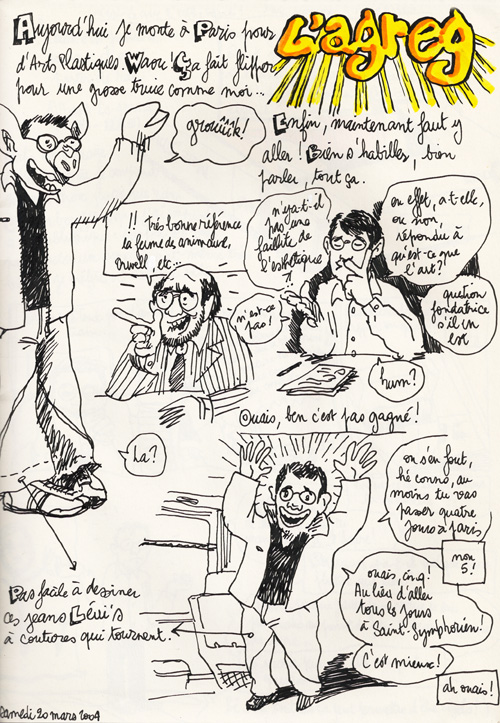 L'agreg
Aujourd'hui je monte à Paris pour
d'Arts Plastiques. Waou! Ça fait flipper
pour une grosse truie comme moi...
grouiiik!
Enfin, maintenant faut y
aller! Bien s'habiller, bien
parler, tout ça.
!! très bonne référence
la ferme des animaux,
Orwell, etc...
n'est-ce
pas!
n'y a-t-il
pas une
faillite de
l'esthétique
?
en effet, a-t-elle,
ou non,
répondu à
qu'est-ce que
l'art?
question
fondatrice
s'il en
est
hum?
Ouais, ben c'est pas gagné!
La?
on s'en fout,
hé conno, au
moins tu vas
passer quatre
jours à Paris
non
5!
ouais, cinq!
Au lieu d'aller
tous les jours
à Saint-Symphorien!
C'est mieux!
ah ouais!
Pas facile à dessiner
ces jeans Lévi's
à coutures qui tournent.
Samedi 20 mars 2004